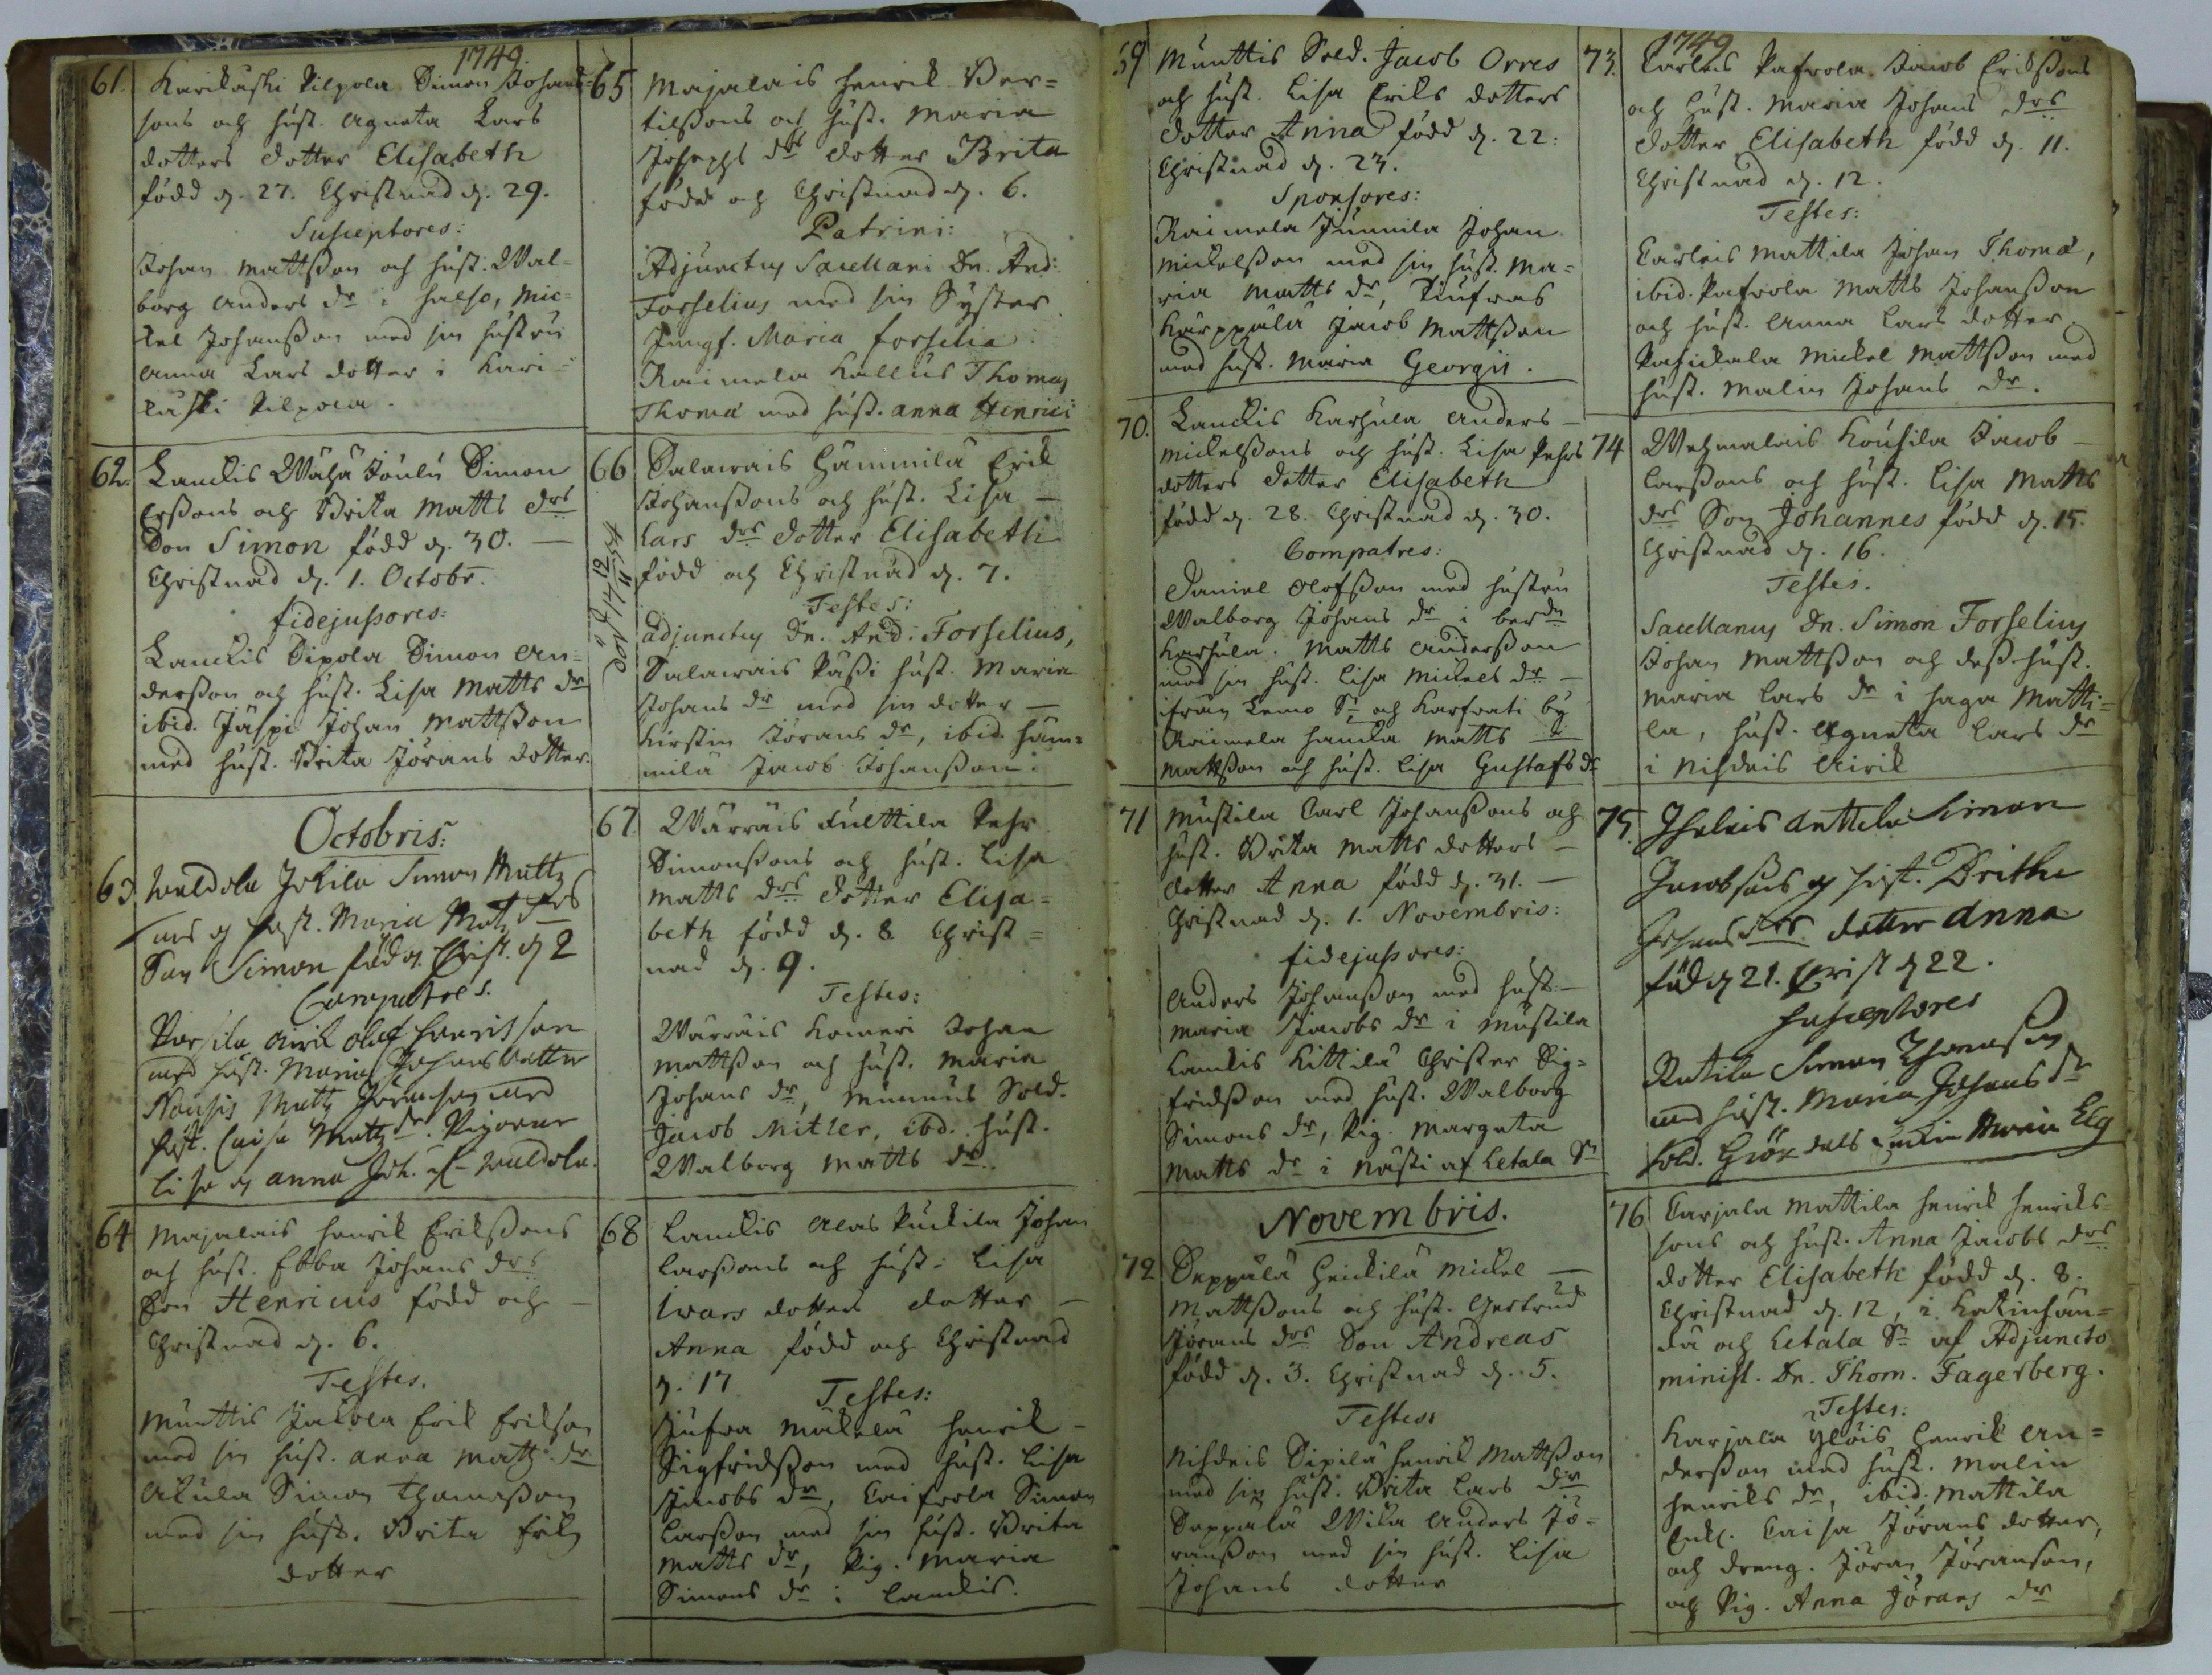 1749.
61. Karikaski Pilpola Simon Johans=
sons och hust. Agneta Lars
dotters dotter Elisabeth
född d. 27. Christnad d. 29.
Susceptores:
Johan Mattsson och hust. Wal-
borg Anders dr i Halso, Mic=
kel Johansson med sin hustru
Anna Lars dotter i Kari=
kaski Pilpola.
62. Lauckis Wähä Jöulu Simon
Ersons och Brita Matts drs
Son Simon född d. 30. —
Christnad d. 1. Octobr.
fidejussores:
Lauckis Sipola Simon An=
dersson och hust. Lisa Matts dr
ibid. Jäspi Johan Mattsson
med hust. Brita Jörans dotter.
Octobris:
63. Waldola Jokila Simon Matts
sons och hust. Maria Matz drs
Son Simon född och Christ. d 2
Compatres.
Airik Olof Henrisson
med hust. Maria Johans dotter
Nousis Matz Göransson med
hust. Caisa Matz dr. Pigorna
Lisa och Anna Joh. dr Waldola.
64 Majalais Henrik Erikssons
och hust. Ebba Johans drs
Son Henricus född och —
Christnad d. 6.
Testes.
Munttis Jakola Erik Erikson
med sin hust. Anna Matz. dr
Ukula Simon Thomasson
med sin hust. Brita Eriks
dotter
65 Majalais Henrik Ber=
tilssons och hust. Maria
Josephs drs dotter Brita
född och Christnad d. 6.
Patrini:
Adjunctus Sacellani Dn. And:
Forselius med sin Syster
Jungf. Maria Forselia.
Raimela Kallus Thomas
Thomæ med hust. Anna Henrici
66 Salawais Hämmilä Erik
Johanssons och hust. Lisa —
Lars drs dotter Elisabeth
född och Christnad d. 7.
Testes:
Adjunctus Dn. And. Forselius,
Salawais Pässi hust. Maria
Johans dr med sin dotter —
Kirstin Jörans dr, ibid. Häm=
milä Jacob Johansson.
67 Wärräis Fulttila Pehr
Simonssons och hust. Lisa
Matts drs dotter Elisa=
beth född d. 8 Christ=
nad d. 9.
Testes:
Wärräis Komeri Johan
Mattsson och hust. Maria
Johans dr, Sold.
Jacob Mitler, ibd. hust.
Walborg Matts dr.
68 Lauckis Alas Puckila Johan
Larssons och hust. Lisa
Iwars dotters dotter —
Anna född och Christnad
d. 17. Testes:
Jufra Mäkelä Henrik —
Sigfridsson med hust. Lisa
Jacobs dr, Simon
Larsson med sin hust. Brita
Matts dr, Pig. Maria
Simons dr i Lauckis.
69 Munttis Sold. Jacob Orres
och hust. Lisa Eriks dotters
dotter Anna född d. 22:
Christnad d. 23.
Sponsores:
Raimela Junnila Johan
Mickelsson med sin hust. Ma=
ria Matts dr,
Kärppälä Jacob Mattsson
med hust. Maria Georgii.
70. Lauckis Karhula Anders —
Mickelssons och hust. Lisa Pehrs
dotters dotter Elisabeth
född d. 28. Christnad d. 30.
Compatres:
Daniel Olofsson med hustru
Walborg Johans dr i berdn
Karhula. Matts Andersson
med sin hust. Lisa Mickels dr —
ifrån Lemo Sn och Karfrati by
Raimela Haucka Matts —
Mattsson och hust. Lisa Gustafs dr
71 Mustila Carl Johanssons och
hust. Brita Matts dotters —
dotter Anna född d. 31. —
Christnad d. 1. Novembris:
fidejussores:
Anders Johansson med hust. —
Maria Jacobs dr i Mustila
Lauckis Kittilä Christer Sig=
fridsson med hust. Walborg
Simons dr, Pig. Margeta
Matts dr i Nästi af Letala Sn
Novembris.
72 Seppälä Heickilä Mickel —
Mattssons och hust. Gertrud
Jörans drs Son Andreas
född d. 3. Christnad d. 5.
Testes:
Nihdeis Sipilä Henrik Mattsson
med sin hust. Brita Lars dr
Seppälä Wika Anders Jö=
ransson med sin hust. Lisa
Johans dotter
1749
73. Carleis Pafwola Jacob Erikssons
och Hust. Maria Johans drs
dotter Elisabeth född d. 11.
Christnad d. 12.
Testes:
Carleis Mattila Johan Thomæ,
ibid. Pafwola Matts Johansson
och hust. Anna Lars dotter
Mickel Mattsson med
hust. Malin Johans dr.
74 Wehmalais Kouhila Jacob —
Larssons och hust. Lisa Matts
drs Son Johannes född d. 15.
Christnad d. 16.
Testes.
Sacellanus Dn. Simon Forselius
Johan Mattsson och dess hust.
Maria Lars dr i Haga Matti=
la, hust. Agneta Lars dr
i Nihdeis Airik
75. Ihalais Anttila Simon
Jacobsons och hust. Britha
Johans drs dotter Anna
född d 21. Christ d 22.
Susceptores
Rutila Simon Thomasson
med hust. Maria Johans dr
sold. Maria Elg
76 Carjala Mattila Henrik Henriks=
sons och hust. Anna Jacobs drs
dotter Elisabeth född d. 8.
Christnad d. 12, i Katinhän=
dä och Letala Sn af Adjuncto
minist. Dn. Thom. Fagerberg.
Testes:
Karjala Yläis Henrik An=
dersson med hust. Malin
Henriks dr, ibid. Mattila
Enk. Caisa Jörans dotter,
och dreng. Jöran Jöransson,
och Pig. Anna Jörans dr